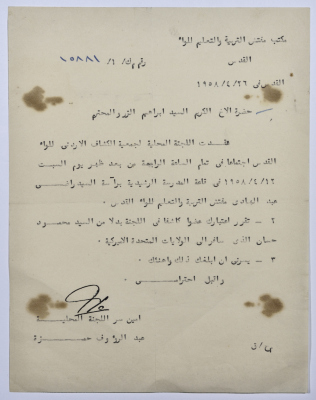 مكتب مفتش التربية والتعليم للواء
القدس
رقم م ك/ ٦/ ١٥٨٨١
القدس في ١٩٥٨/٤/٢٦
حضرة الاخ الكريم السيد ابراهيم المحترم
عقدت اللجنة المحلية لجمعية الكشاف الاردني للواء
القدس اجتماعا في تمام الساعة الرابعة من بعد ظهر يوم السبت
١٩٥٨/٤/٢٦ في قاعة المدرسة الرشيدية برئاسة السيد
عبد الهادي مفتش التربية والتعليم للواء القدس ٠
٢ - تقرر اعتبارك عضوا كاملا في اللجنة بدلا من السيد محمود
حسان الذي سافر الى الولايات المتحدة الامريكية ٠
٣ - يسرني ان ابلغك ذلك واهنئك ٠
واقبل احترامي ٠
امين سر اللجنة المحلية
عبد الرؤوف حمزة